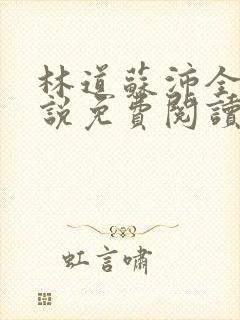 林道蘇沛全
說免費閱讀
虹言嘯